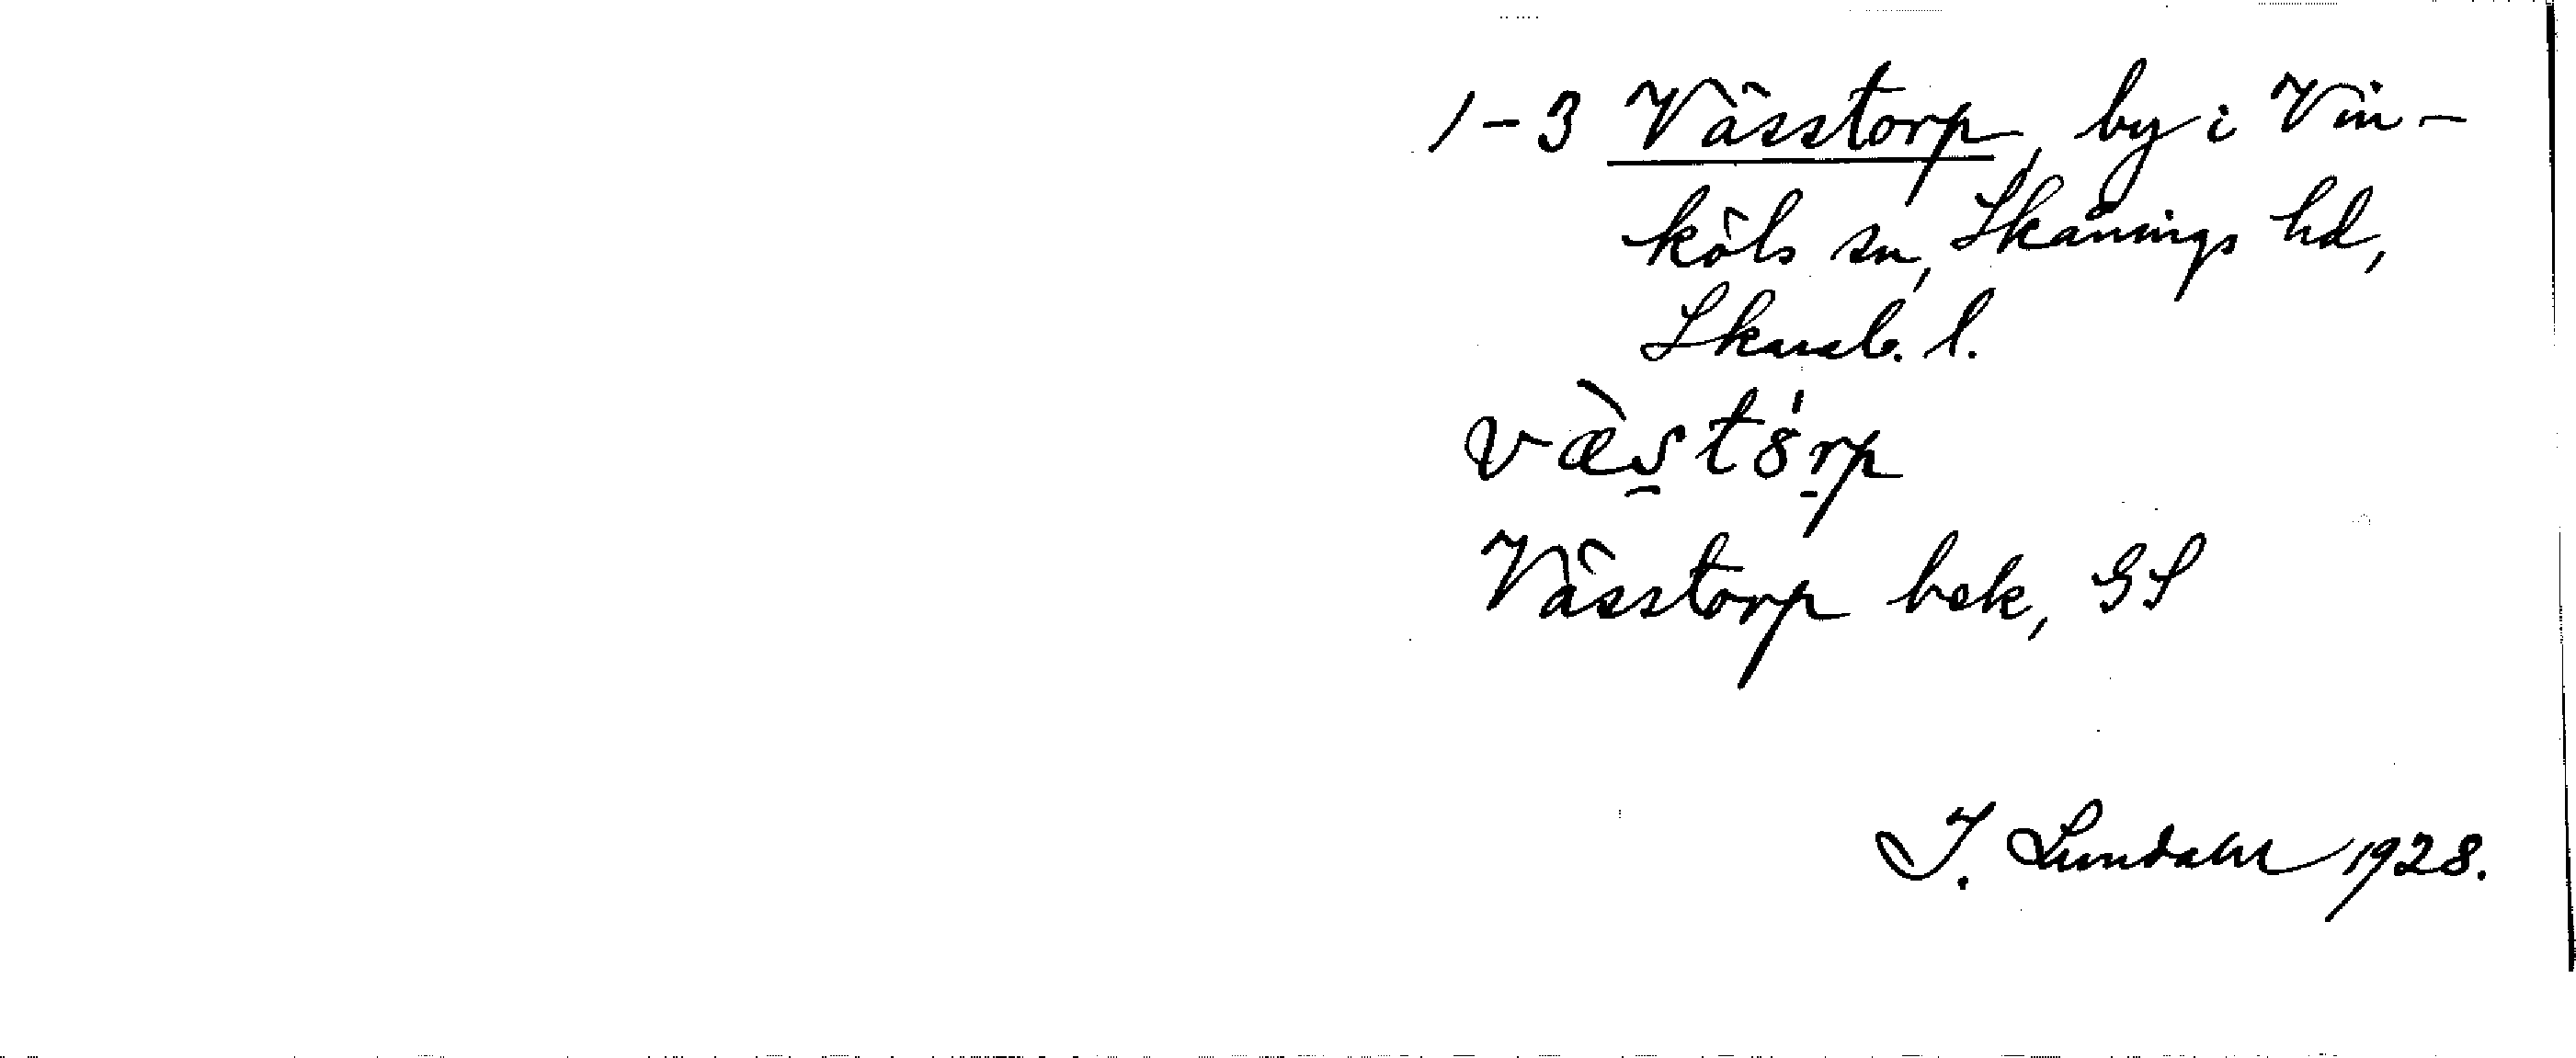 1-3 Västorp, by i Vin-
köls sn, Skånings hd,
Skarab. l.
væ̀stȣ́rp
Vässtorp bek, GS
I. Lundahl 1928.